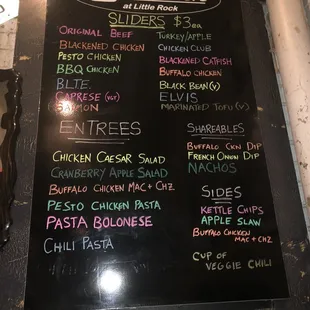 at Little Rock
SLIDERS $3ea
ORIGINAL BEEF
BLACKENED CHICKEN
PESTO CHICKEN
BBQ CHICKEN
B.L.T.E.
CAPRESE (VGT)
SALMON
TURKEY/APPLE
CHICKEN CLUB
BLACKENED CATFISH
BUFFALO CHICKEN
BLACK BEAN (V)
ELVIS
MARINATED TOFU (V)
ENTREES
CHICKEN CAESAR SALAD
CRANBERRY APPLE SALAD
BUFFALO CHICKEN MAC + CHZ
PESTO CHICKEN PASTA
PASTA BOLONESE
CHILI PASTA
SHAREABLES
BUFFALO CKN DIP
FRENCH ONION DIP
NACHOS
SIDES
KETTLE CHIPS
APPLE SLAW
BUFFALO CHICKEN
MAC + CHZ
CUP OF
VEGGIE CHILI